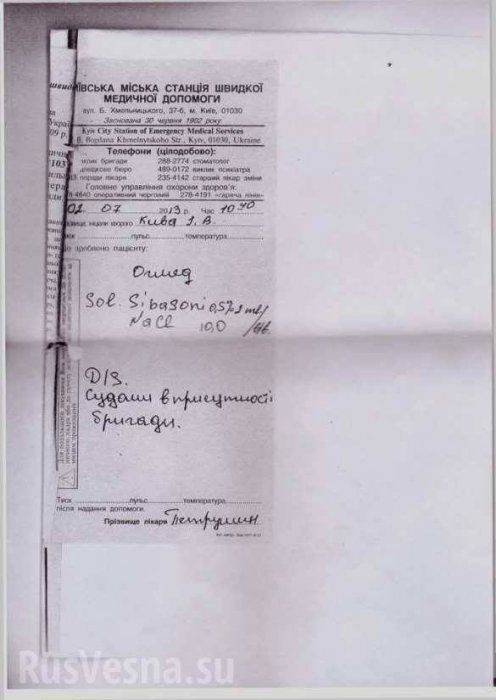 ЇВСЬКА МІСЬКА СТАНЦІЯ ШВИДКОЇ
МЕДИЧНОЇ ДОПОМОГИ
вул. Б. Хмельницького, 37-б, м. Київ, 01030
Заснована 30 червня 1902 року
Kyiv City Station of Emergency Medical Services
B. Bogdana Khmelnytskoho Str., Kyiv, 01030, Ukraine
Телефони (цілодобово):
бригади 288-2774 стоматолог
бюро 489-0172 виклик психіатра
поради лікаря 235-4142 старший лікар зміни
Головне управління охорони здоров'я:
оперативний черговий 278-4191
07 2013 р. Час 10 40
хворого Кива І. В
пульс температура
зроблено пацієнту:
Огляд
Sol. Sibasoni 0,5% 2 ml/
NaCl 10,0
D/S.
Судоми в присутності
бригади.
Тиск пульс температура
після надання допомоги
Прізвище лікаря
RusVesna.su